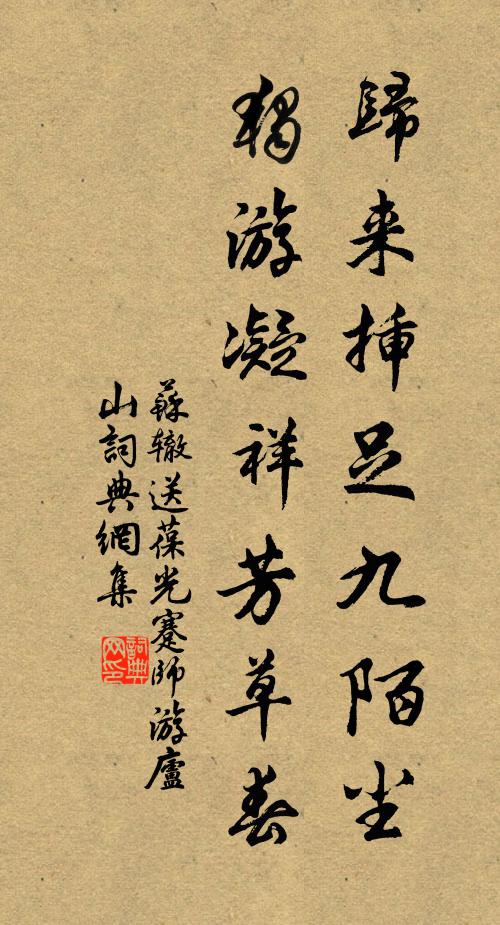 歸来插足九陌尘
獨游凝祥芳草春
蘇辙送葆光蹇師游廬
山詞典網集
詞典
网印